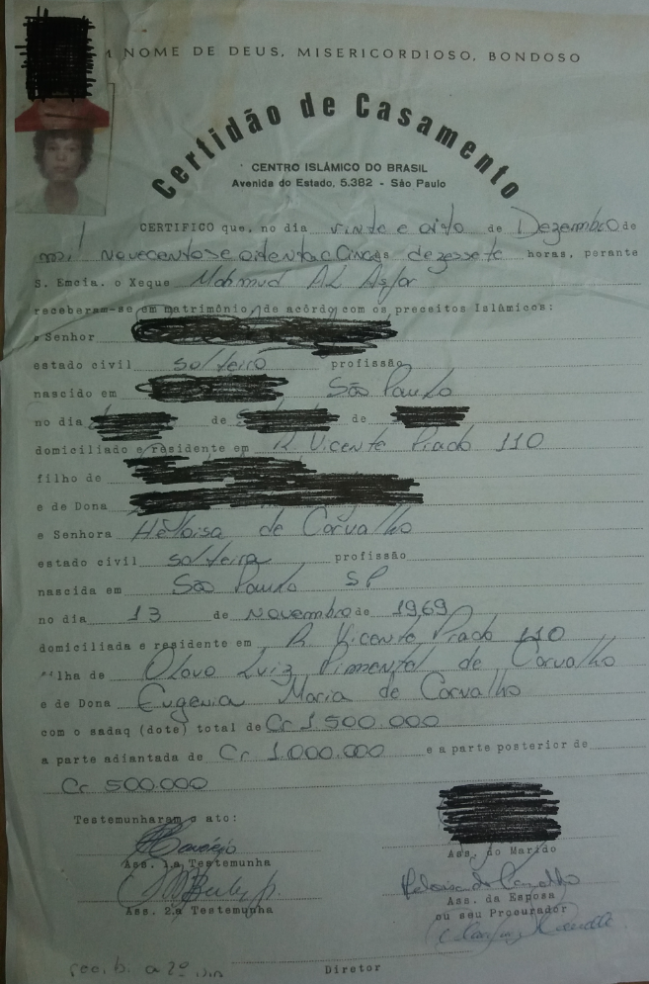 M NOME DE DEUS, MISERICORDIOSO, BONDOSO
Certidão de Casamento
CENTRO ISLÂMICO DO BRASIL
Avenida do Estado, 5.382 - São Paulo
CERTIFICO que, no dia vinte e oito de Dezembro de
mil novecentos e oitenta e Cinco às dezessete horas, perante
S. Emcia. o Xeque Mahmud AL
receberam-se em matrimônio, de acôrdo com os preceitos Islâmicos:
Senhor
estado civil solteiro profissão
nascido em São Paulo
no dia de de
domiciliado e residente em R. Vicente Prado 110
filho de
e de Dona
e Senhora Hêloisa de Carvalho
estado civil solteira profissão
nascida em São Paulo SP
no dia 13 de Novembro de 1969
domiciliada e residente em R Vicente Prado 110
filha de Olavo Luiz Pimentel de Carvalho
e de Dona Eugenia Maria de Carvalho
com o sadaq (dote) total de Cr 1500.000
a parte adiantada de Cr 1.000.000 e a parte posterior de
Cr 500.000
Testemunharam o ato:
Ass. 1a Testemunha
Ass. do Marido
Ass. 2a Testemunha
Ass. da Esposa
ou seu Procurador
Diretor